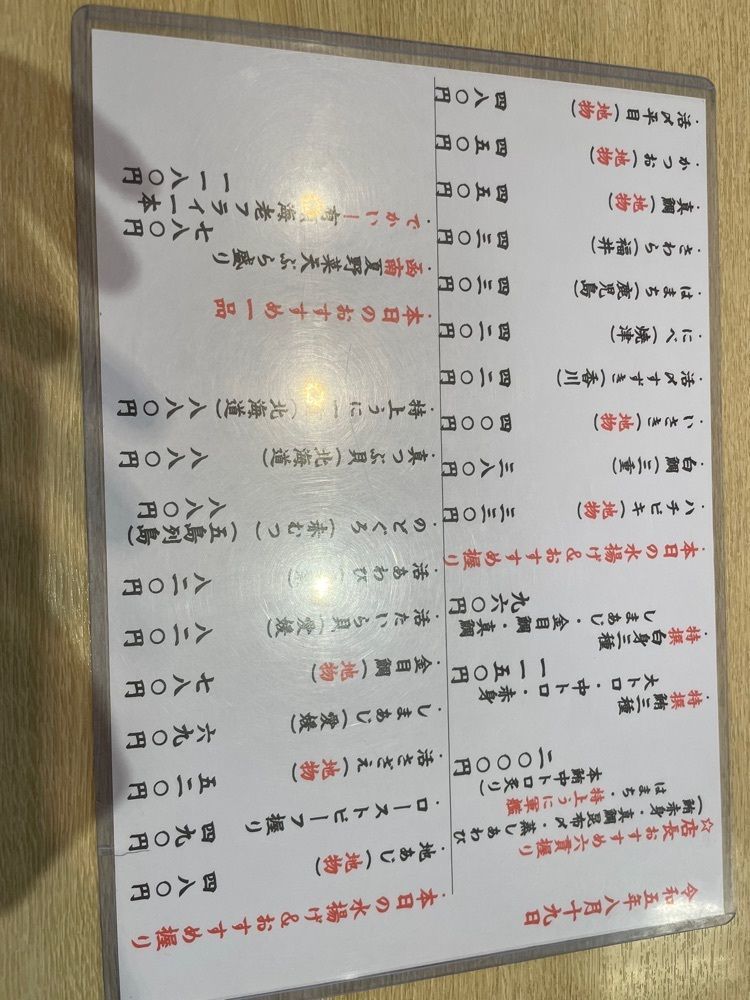 令和五年八月十九日
☆店長おすすめ六貫握り
(鮪赤身・真鯛昆布〆・蒸しあわび
はまち・特上うに軍艦
本鮪中トロ炙り)
二〇〇〇円
・特撰 鮪三種
大トロ・中トロ・赤身
一一五〇円
・特撰 白身三種
しまあじ・金目鯛・真鯛
九六〇円
・本日の水揚げ&おすすめ握り
・ハチビキ(地物) 三三〇円
・白鯛(三重) 三八〇円
・いさき(地物) 四〇〇円
・活〆すずき(香川) 四二〇円
・にべ(焼津) 四二〇円
・はまち(鹿児島) 四三〇円
・さわら(福井) 四三〇円
・真鯛(地物) 四五〇円
・かつお(地物) 四五〇円
・活〆平目(地物) 四八〇円
・本日の水揚げ&おすすめ握り
・地あじ(地物) 四八〇円
・ローストビーフ握り 四九〇円
・活さざえ(地物) 五二〇円
・しまあじ(愛媛) 六九〇円
・金目鯛(地物) 七八〇円
・活たいら貝(愛媛) 八二〇円
・活あわび 八二〇円
・のどぐろ(赤むつ)
(五島列島) 八八〇円
・真つぶ貝(北海道) 八八〇円
・特上うに一(北海道) 八八〇円
・本日のおすすめ一品
・函南夏野菜天ぷら盛り
七八〇円
・でかい!有 海老フライ一本
一一八〇円